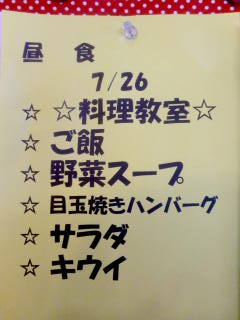 昼　食
7/26
☆ ☆料理教室☆
☆ ご飯
☆ 野菜スープ
☆ 目玉焼きハンバーグ
☆ サラダ
☆ キウイ